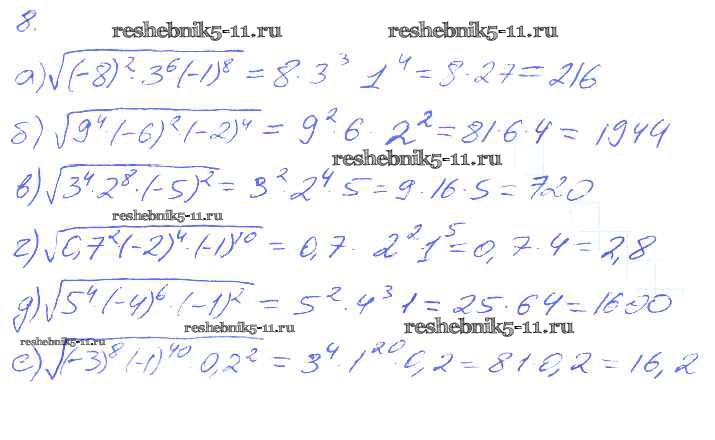 8.
reshebnik5-11.ru reshebnik5-11.ru
а) √((-8)² · 3⁶ (-1)⁸) = 8 · 3³ 1⁴ = 8 · 27 = 216
б) √(9⁴ · (-6)² · (-2)⁴) = 9² · 6 · 2² = 81 · 6 · 4 = 1944
reshebnik5-11.ru
в) √(3⁴ · 2⁸ · (-5)²) = 3² · 2⁴ · 5 = 9 · 16 · 5 = 720
reshebnik5-11.ru
г) √(0,7² (-2)⁴ · (-1)¹⁰) = 0,7 · 2² · 1⁵ = 0,7 · 4 = 2,8
д) √(5⁴ · (-4)⁶ · (-1)²) = 5² · 4³ 1 = 25 · 64 = 1600
reshebnik5-11.ru reshebnik5-11.ru
reshebnik5-11.ru
е) √((-3)⁸ (-1)⁴⁰ · 0,2²) = 3⁴ · 1²⁰ · 0,2 = 81 0,2 = 16,2